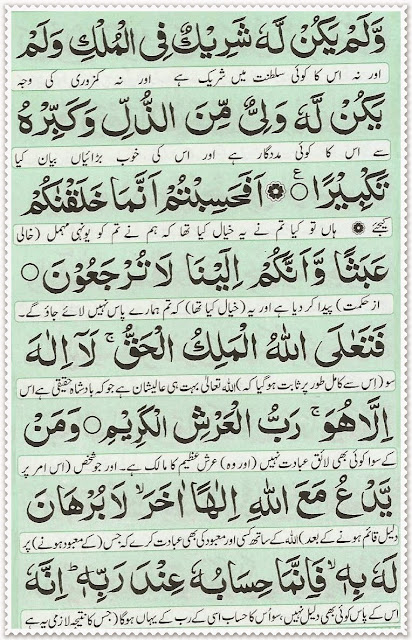 وَّلَمْ يَكُنْ لَّهٗ شَرِيْكٌ فِى الْمُلْكِ وَلَمْ
اور نہ اس کا کوئی سلطنت میں شریک ہے اور نہ کمزوری کی وجہ
يَكُنْ لَّهٗ وَلِىٌّ مِّنَ الذُّلِّ وَكَبِّرْهُ
سے اس کا کوئی مددگار ہے اور اس کی خوب بڑائیاں بیان کیا
تَكْبِيْرًا ۝ اَفَحَسِبْتُمْ اَنَّمَا خَلَقْنٰكُمْ
کیجئے ۝ ہاں تو کیا تم نے یہ خیال کیا تھا کہ ہم نے تم کو یونہی مہمل (خالی
عَبَثًا وَّاَنَّكُمْ اِلَيْنَا لَا تُرْجَعُوْنَ ۝
از حکمت) پیدا کر دیا ہے اور یہ (خیال کیا تھا) کہ تم ہمارے پاس نہیں لائے جاؤ گے۔
فَتَعٰلَى اللّٰهُ الْمَلِكُ الْحَقُّ ۚ لَآ اِلٰهَ
سو (اس سے کامل طور پر ثابت ہو گیا کہ) اللہ تعالیٰ بہت ہی عالیشان ہے جو کہ بادشاہ حقیقی ہے اس
اِلَّا هُوَ ۚ رَبُّ الْعَرْشِ الْكَرِيْمِ ۝ وَمَنْ
کے سوا کوئی بھی لائق عبادت نہیں (اور وہ) عرش عظیم کا مالک ہے۔ اور جو شخص (اس امر پر
يَّدْعُ مَعَ اللّٰهِ اِلٰهًا اٰخَرَ ۙ لَا بُرْهَانَ
دلیل قائم ہونے کے بعد) اللہ کے ساتھ کسی اور معبود کی بھی عبادت کرے کہ جس (کے معبود ہونے) پر
لَهٗ بِهٖ ۙ فَاِنَّمَا حِسَابُهٗ عِنْدَ رَبِّهٖ ؕ اِنَّهٗ
اس کے پاس کوئی بھی دلیل نہیں، سو اس کا حساب اسی کے رب کے یہاں ہو گا (جس کا نتیجہ لازمی یہ ہے